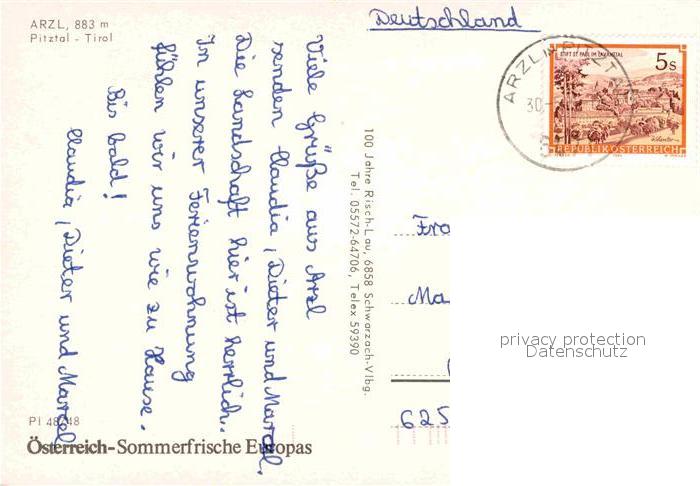 ARZL, 883 m
Pitztal - Tirol
Deutschland
STIFT ST. PAUL IM LAVANTTAL
5s
REPUBLIK ÖSTERREICH
ARZL IM PITZTAL
30.
Viele Grüße aus Arzl
senden Claudia, Dieter und Marcel.
Die Landschaft hier ist herrlich.
In unserer Ferienwohnung
fühlen wir uns wie zu Hause.
Bis bald!
Claudia, Dieter und Marcel
100 Jahre Risch-Lau, 6858 Schwarzach-Vlbg.
Tel. 05572-64706, Telex 59390
Fra
Ma
625
privacy protection
Datenschutz
PI 48/48
Österreich-Sommerfrische Europas